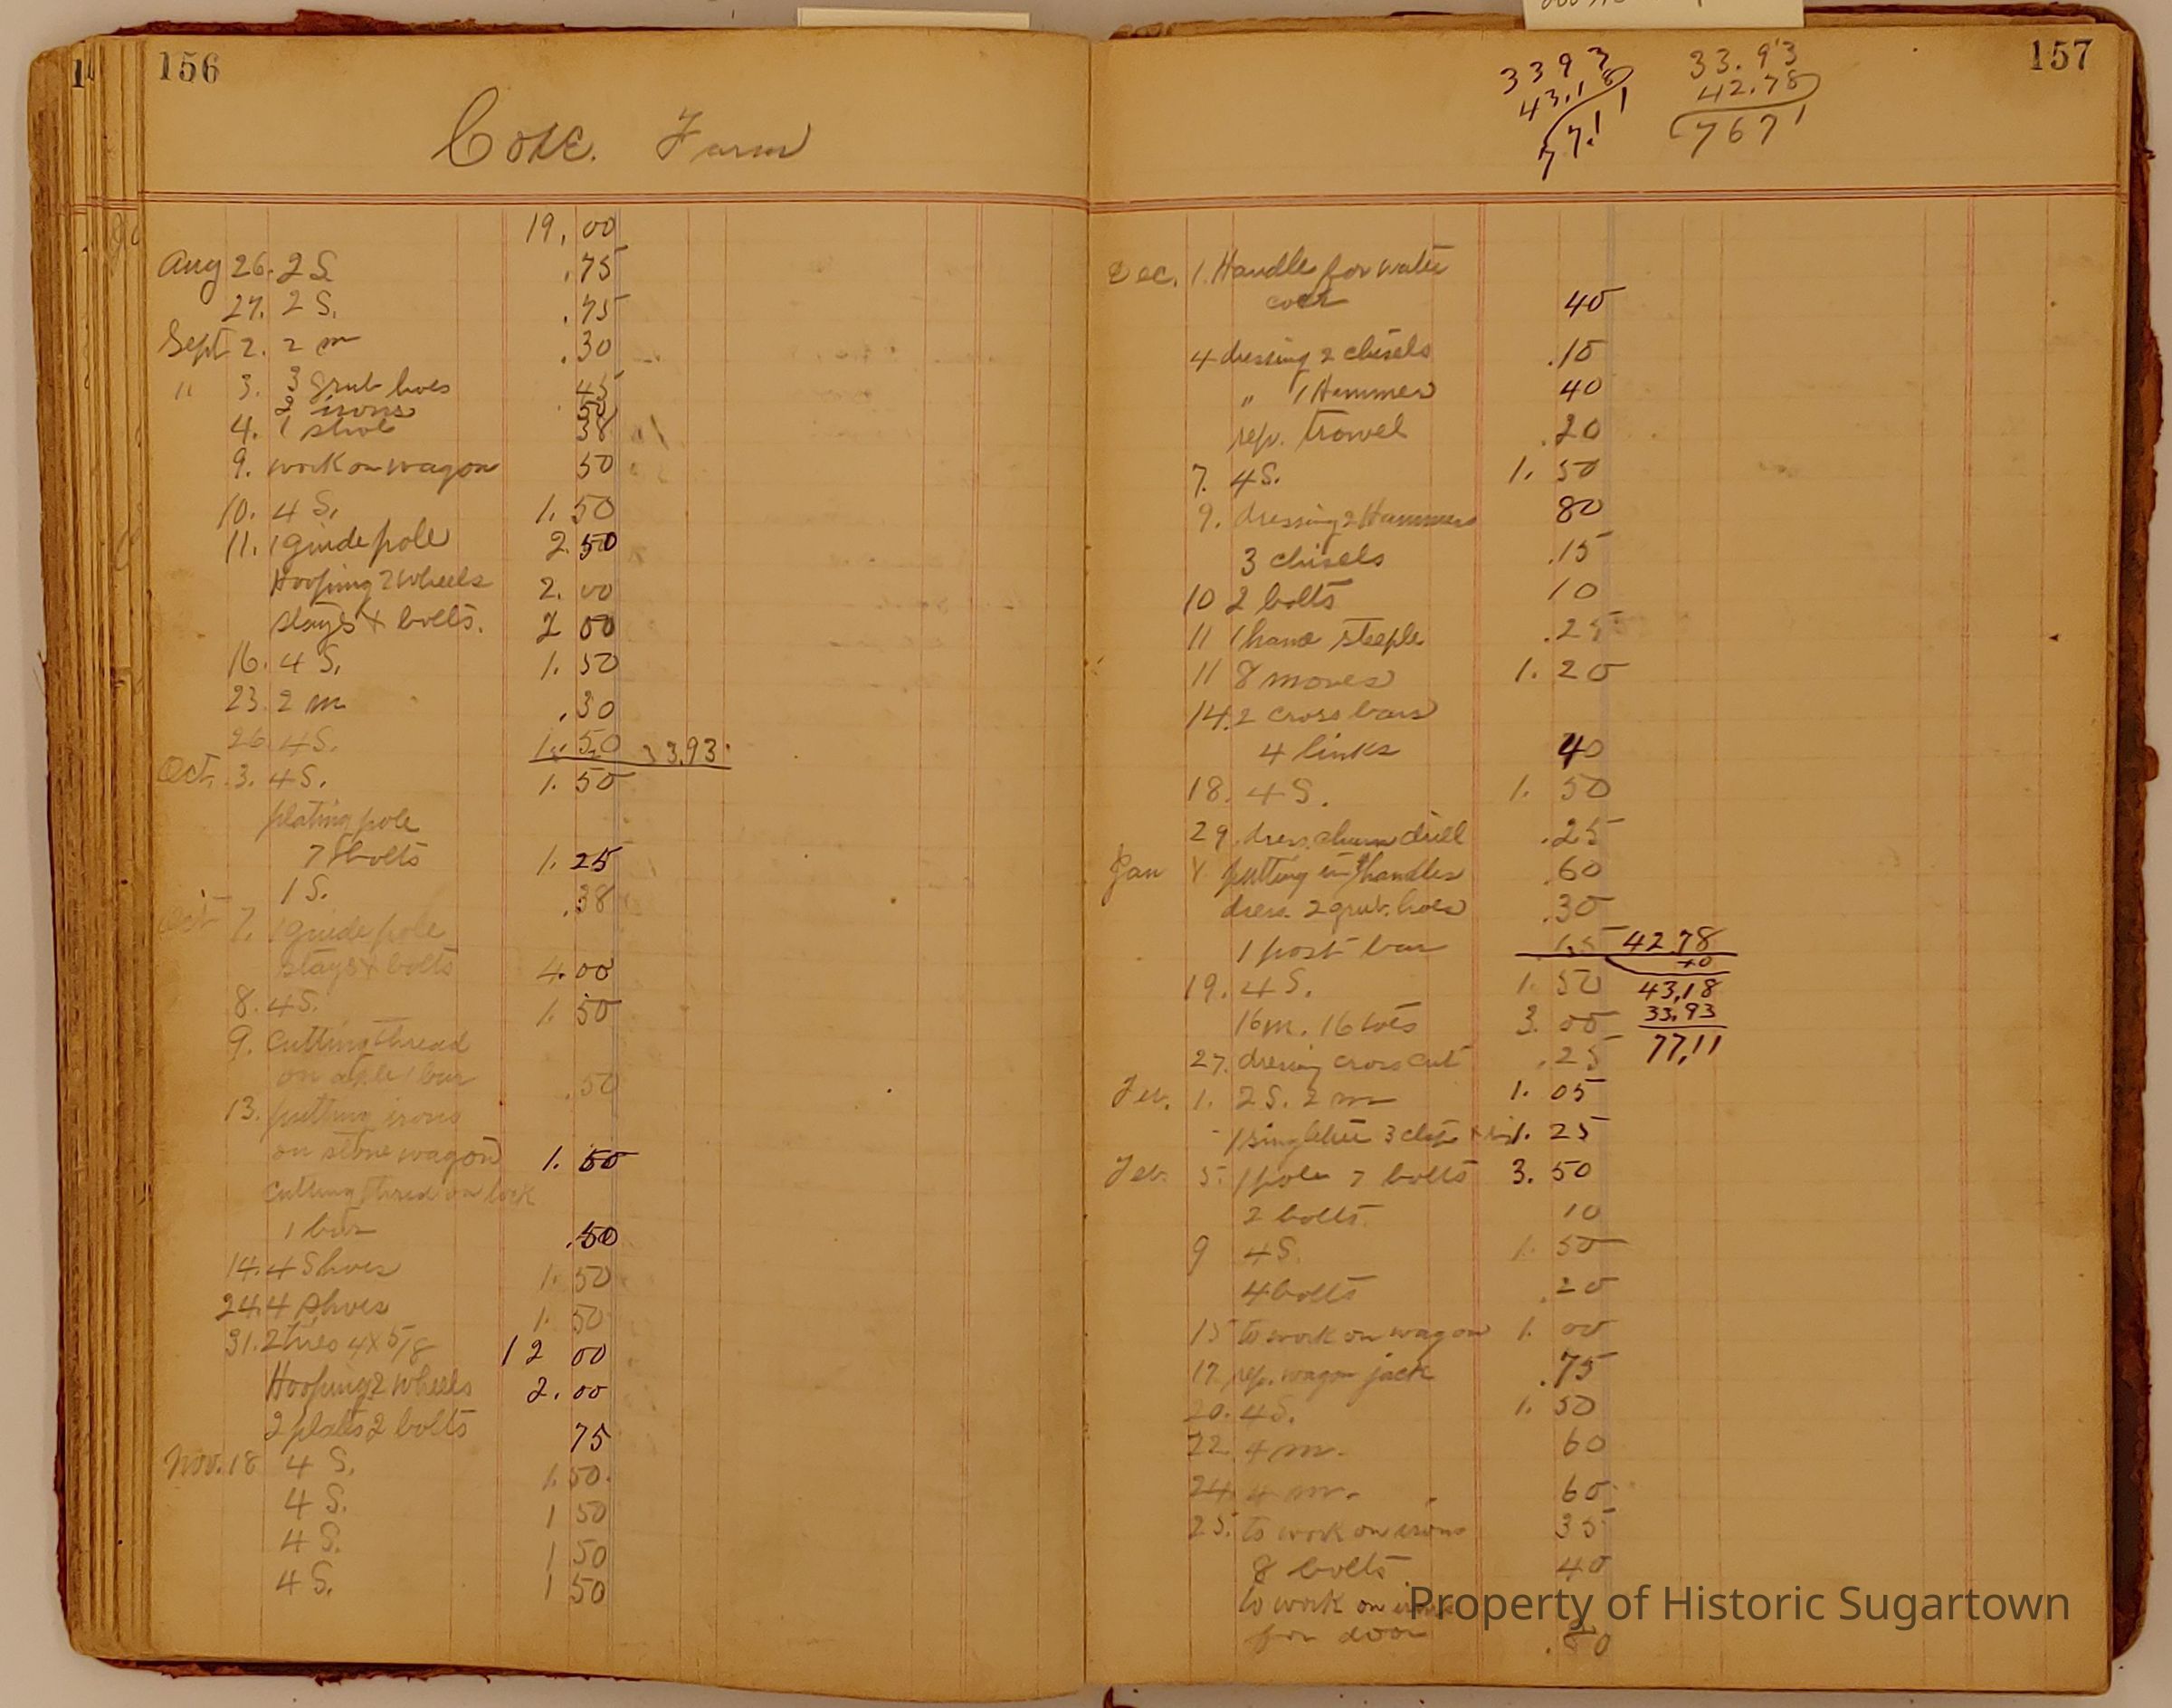 156
Coxe. Farm
19, 00
Aug 26. 2 S. .75
27. 2 S. .75
Sept 2. 2 m .30
" 3. 3 grub hoes 45
2 irons 50
4. 1 shoe 38
9. work on wagon 50
10. 4 S. 1. 50
11. 1 guide pole 2. 50
Hooping 2 wheels 2. 00
stays + bolts. 2 00
16. 4 S. 1. 50
23. 2 m .30
26. 4 S. 1. 50 33.93
Oct. 3. 4 S. 1. 50
plating pole
7 bolts 1. 25
1 S. .38
Oct 7. 1 guide pole
stays + bolts 4.00
8. 4 S. 1. 50
9. Cutting thread
on axle 1 bur .50
13. putting irons
on stone wagon 1. 50
cutting thred on lock
1 bur .50
14. 4 Shoes 1. 50
24. 4 shoes 1. 50
31. 2 tires 4 x 5/8 12 00
Hooping 2 Wheels 2. 00
2 plates 2 bolts 75
Nov. 18 4 S. 1. 50.
4 S. 1 50
4 S. 1 50
4 S. 1 50
157
3393
43.18
77.11
33.93
42.78
7671
Dec. 1. Handle for water
40
4 dressing 2 chisels .10
" 1 Hammer 40
rep. trowel .20
7. 4 S. 1. 50
9. dressing 2 Hammers 80
3 chisels .15
10 2 bolts 10
11 1 hame steeple .25
11 8 moves 1. 20
14. 2 cross bars
4 links 40
18. 4 S. 1. 50
29. dress. churn drill .25
Jan putting in handles .60
dress. 2 grub. hoes .30
1 post bar 15 42.78
40
19. 4 S. 1. 50 43,18
16 m. 16 toes 3. 00 33.93
77,11
27. dressing cross cut .25
Feb. 1. 2 S. 2 m 1. 05
1 singletree 3 clips 1. 25
Feb. 5. 1 pole 7 bolts 3. 50
2 bolts 10
9 4 S. 1. 50
4 bolts .20
15 to work on wagon 1. 00
17. rep. wagon jack .75
20. 4 S. 1. 50
22. 4 m. 60
24. 4 m. 60
25. to work on irons 35
8 bolts 40
to work on
for door
Property of Historic Sugartown